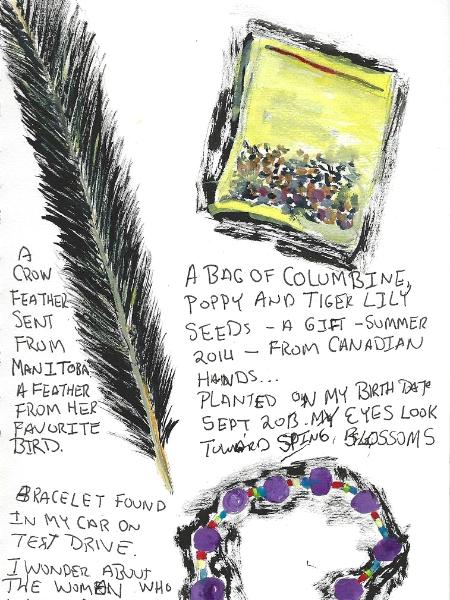 A
CROW
FEATHER
SENT
FROM
MANITOBA
A FEATHER
FROM HER
FAVORITE
BIRD.
A BAG OF COLUMBINE,
POPPY AND TIGER LILY
SEEDS - A GIFT - SUMMER
2014 - FROM CANADIAN
HANDS...
PLANTED ON MY BIRTH DATE
SEPT 2013. MY EYES LOOK
TOWARD SPING, BLOSSOMS
BRACELET FOUND
IN MY CAR ON
TEST DRIVE.
I WONDER ABOUT
THE WOMEN WHO